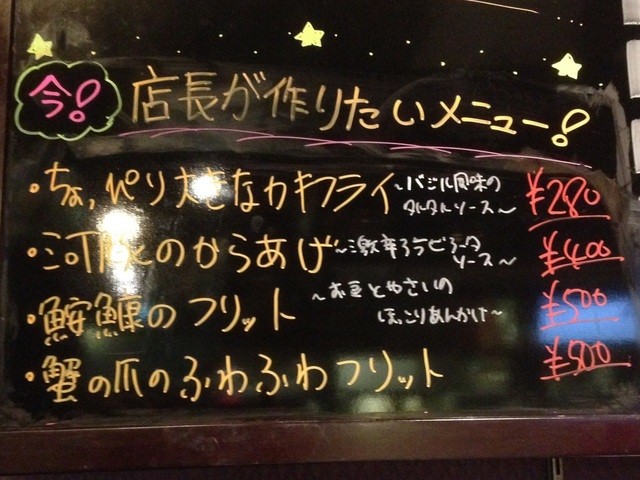 今! 店長が作りたいメニュー!
・ちょっぴり大きなカキフライ ~バジル風味の
タルタルソース~ ¥280
・河豚のからあげ ~激辛
ソース~ ¥400
・鮟鱇のフリット ~お豆とやさいの
ほっこりあんかけ~ ¥500
・蟹の爪のふわふわフリット ¥500